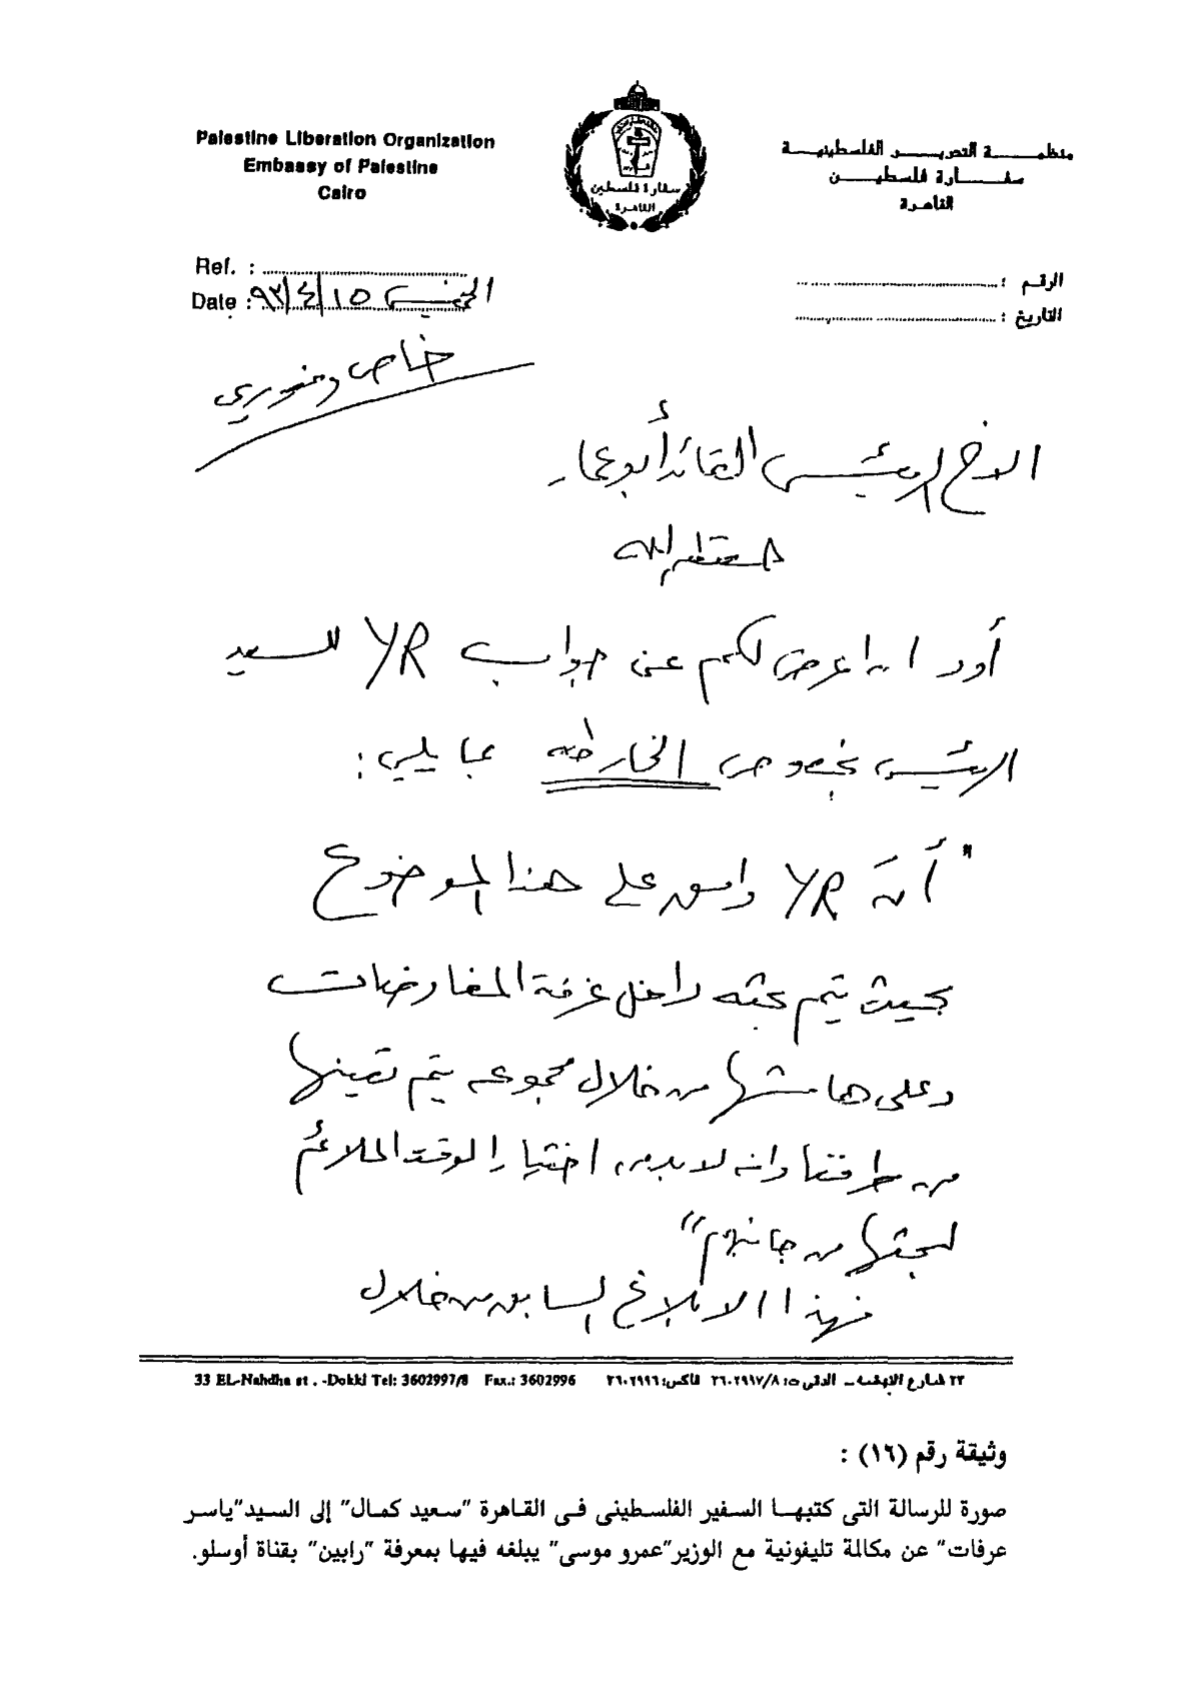 Palestine Liberation Organization
Embassy of Palestine
Cairo
منظمة التحرير الفلسطينية
سفارة فلسطين
القاهرة
سفارة فلسطين
القاهرة
Ref. :
Date : الخميس ٩٣/٤/١٥
الرقم :
التاريخ :
خاص وفوري
الاخ الرئيس القائد أبو عمار
حفظه الله
أود ان اعرض لكم عن جواب YR للسيد
الرئيس بخصوص الخارطه بما يلي :
" أن YR وافق على هذا الموضوع
بحيث يتم بحثه داخل غرفة المفاوضات
وعلى هامشها من خلال مجموعه يتم تعينها
من طرفنا وانه لا بد من اختيار الوقت الملائم
لبحثها من جانبهم "
فهذا الابلاغ السابق من خلال
33 EL-Nahdha st . -Dokki Tel: 3602997/8 Fax.: 3602996
٣٣ شارع النهضة - الدقى ت: ٣٦٠٢٩٩٧/٨ فاكس: ٣٦٠٢٩٩٦
وثيقة رقم (١٦) :
صورة للرسالة التى كتبها السفير الفلسطينى فى القاهرة "سعيد كمال" إلى السيد"ياسر
عرفات" عن مكالمة تليفونية مع الوزير"عمرو موسى" يبلغه فيها بمعرفة "رابين" بقناة أوسلو.